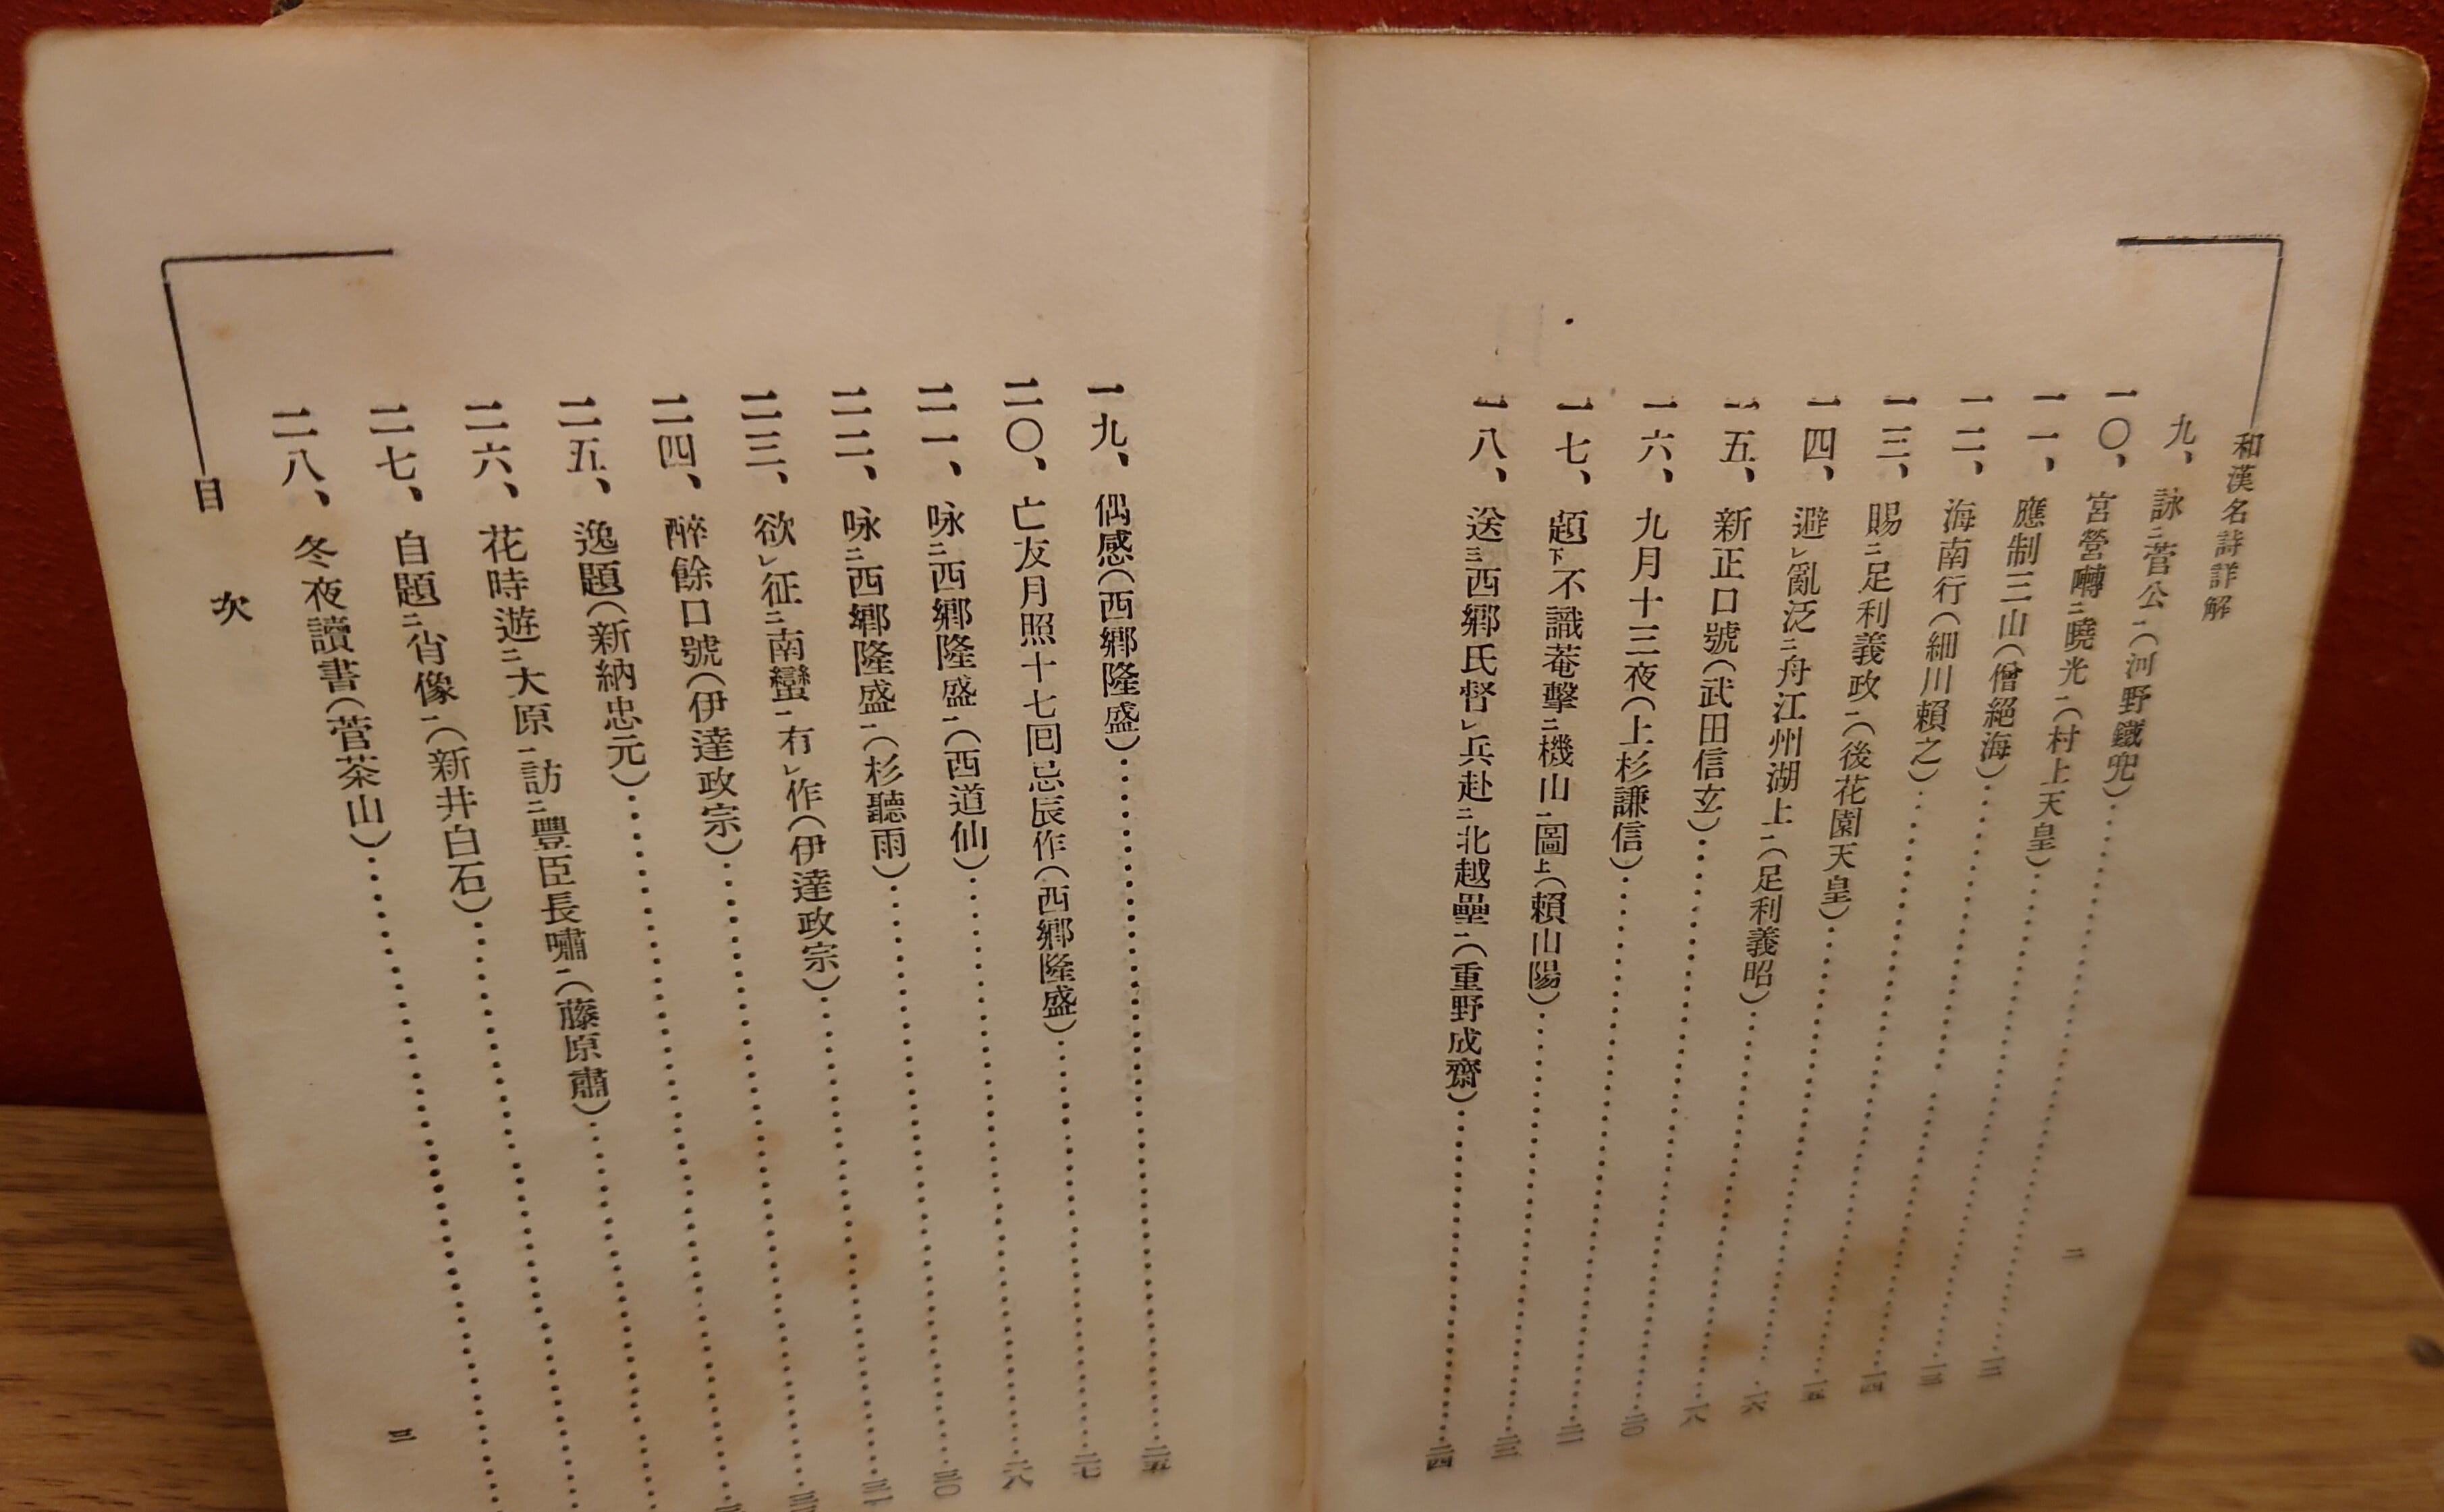 和漢名詩詳解
九、詠㆓菅公㆒(河野鐵兜)
一〇、宮營囀㆓曉光㆒(村上天皇)
一一、應制三山(僧絕海)
一二、海南行(細川賴之)
一三、賜㆓足利義政㆒(後花園天皇)
一四、避㆑亂泛㆓舟江州湖上㆒(足利義昭)
一五、新正口號(武田信玄)
一六、九月十三夜(上杉謙信)
一七、題㆘不識菴擊㆓機山㆒圖㆖(賴山陽)
一八、送㆔西鄉氏督㆑兵赴㆓北越壘㆒(重野成齋)
二
一九、偶感(西鄉隆盛)
二〇、亡友月照十七回忌辰作(西鄉隆盛)
二一、咏㆓西鄉隆盛㆒(西道仙)
二二、咏㆓西鄉隆盛㆒(杉聽雨)
二三、欲㆑征㆓南蠻㆒有㆑作(伊達政宗)
二四、醉餘口號(伊達政宗)
二五、逸題(新納忠元)
二六、花時遊㆓大原㆒訪㆓豐臣長嘯㆒(藤原肅)
二七、自題㆓肖像㆒(新井白石)
二八、冬夜讀書(菅茶山)
目次
三